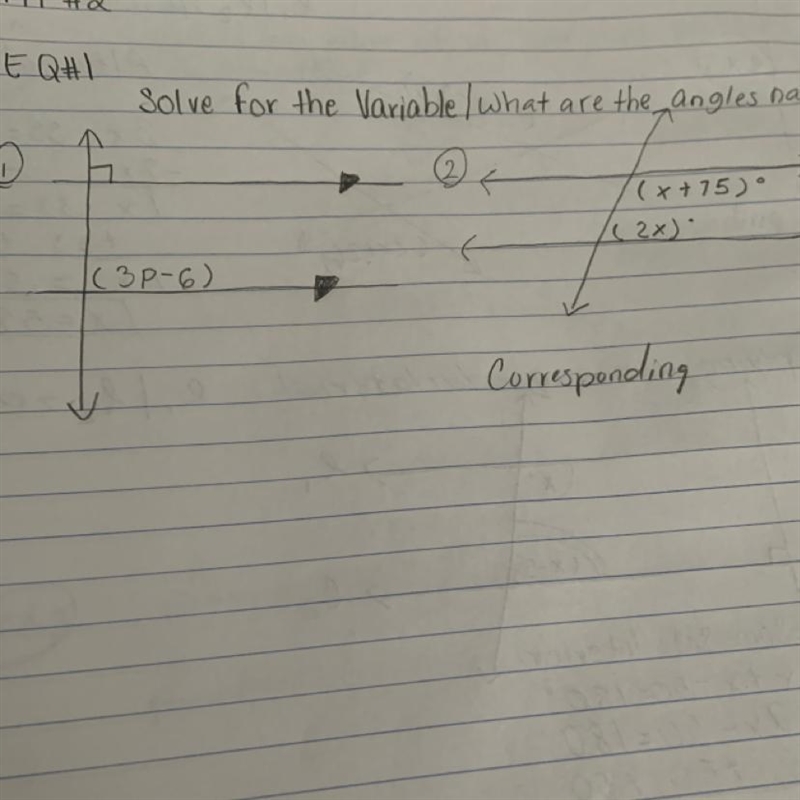 E Q#1
Solve for the Variable/What are the angles na
①
②
(x+75)°
(2x)°
(3p-6)
Corresponding